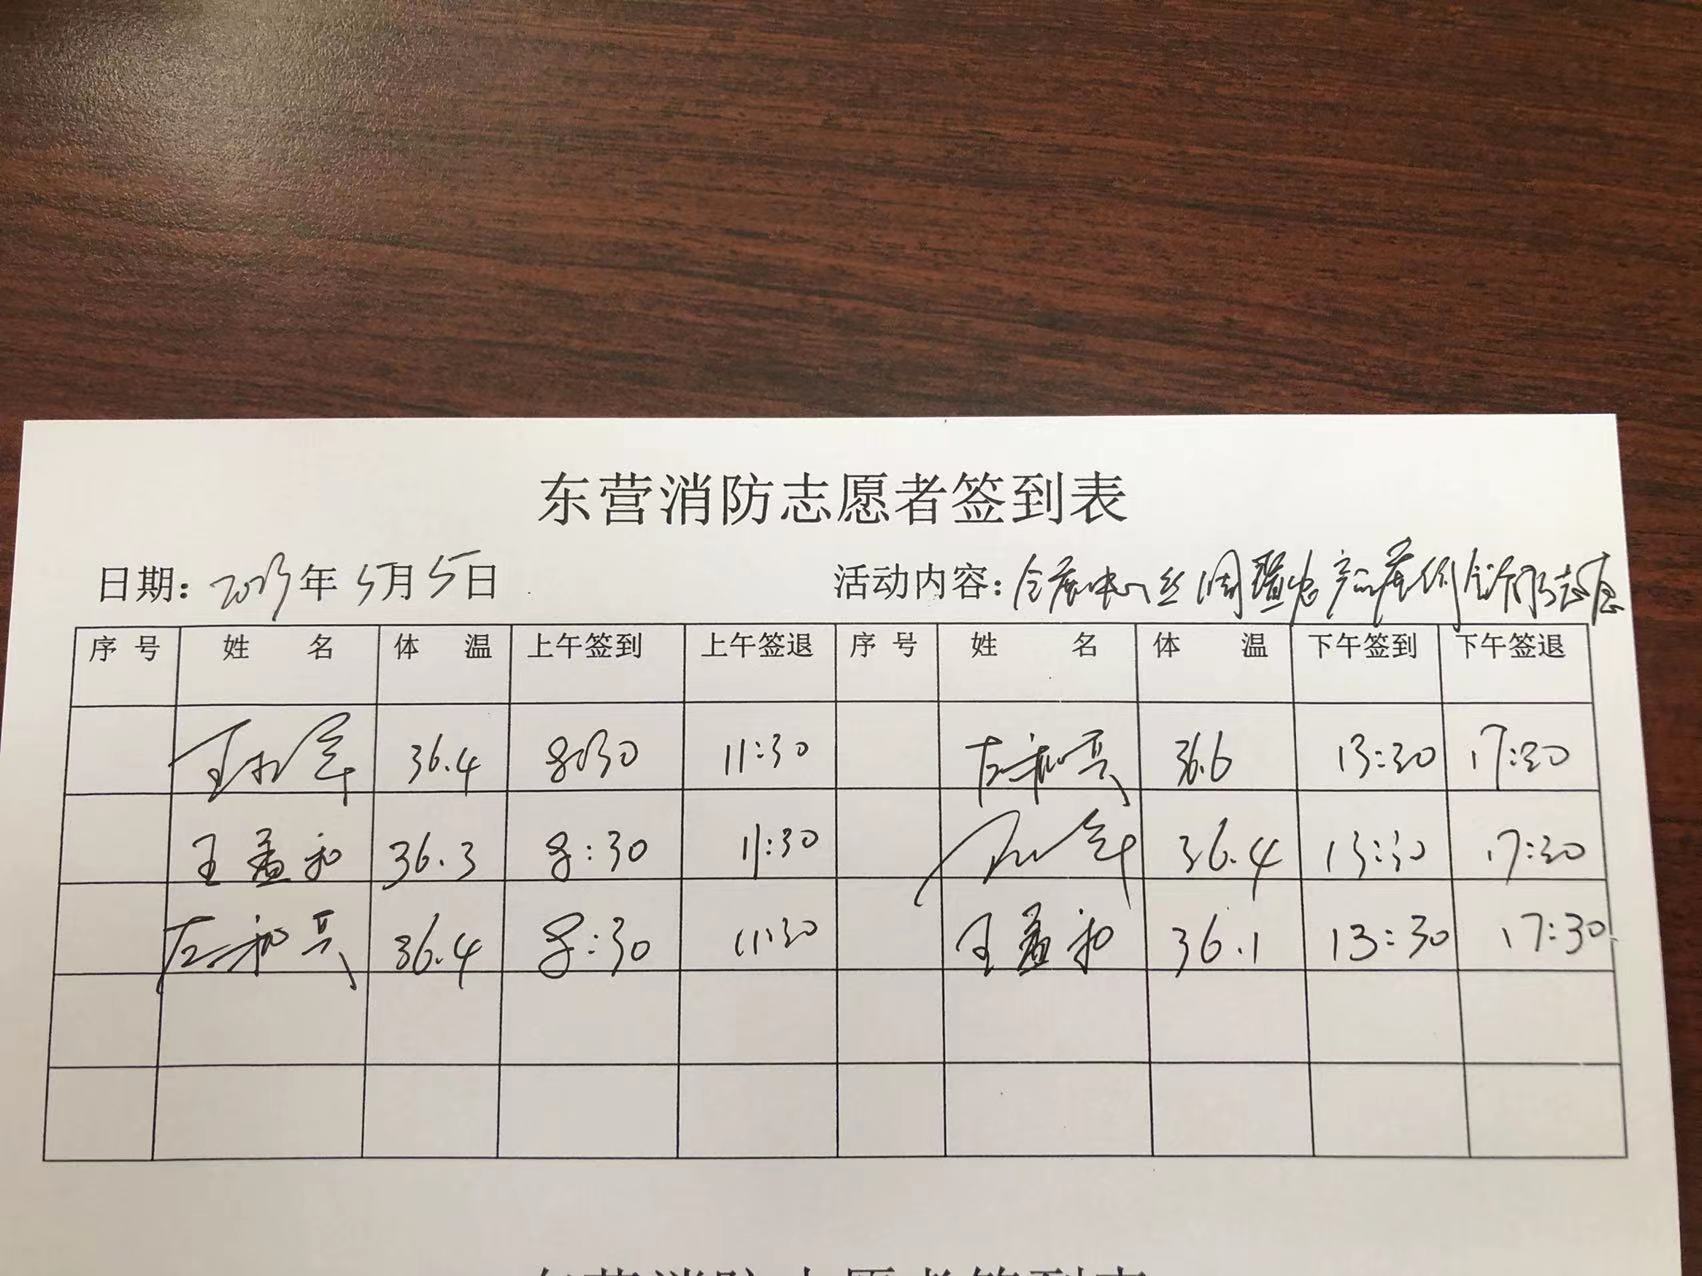 东营消防志愿者签到表
日期: 2023年5月5日 活动内容: 会展中心
序号 姓名 体温 上午签到 上午签退 序号 姓名 体温 下午签到 下午签退
36.4 8:30 11:30 左和兵 36.6 13:30 17:30
王孟和 36.3 8:30 11:30 36.4 13:30 17:30
左和兵 36.4 8:30 11:30 王孟和 36.1 13:30 17:30
东营消防志愿者签到表